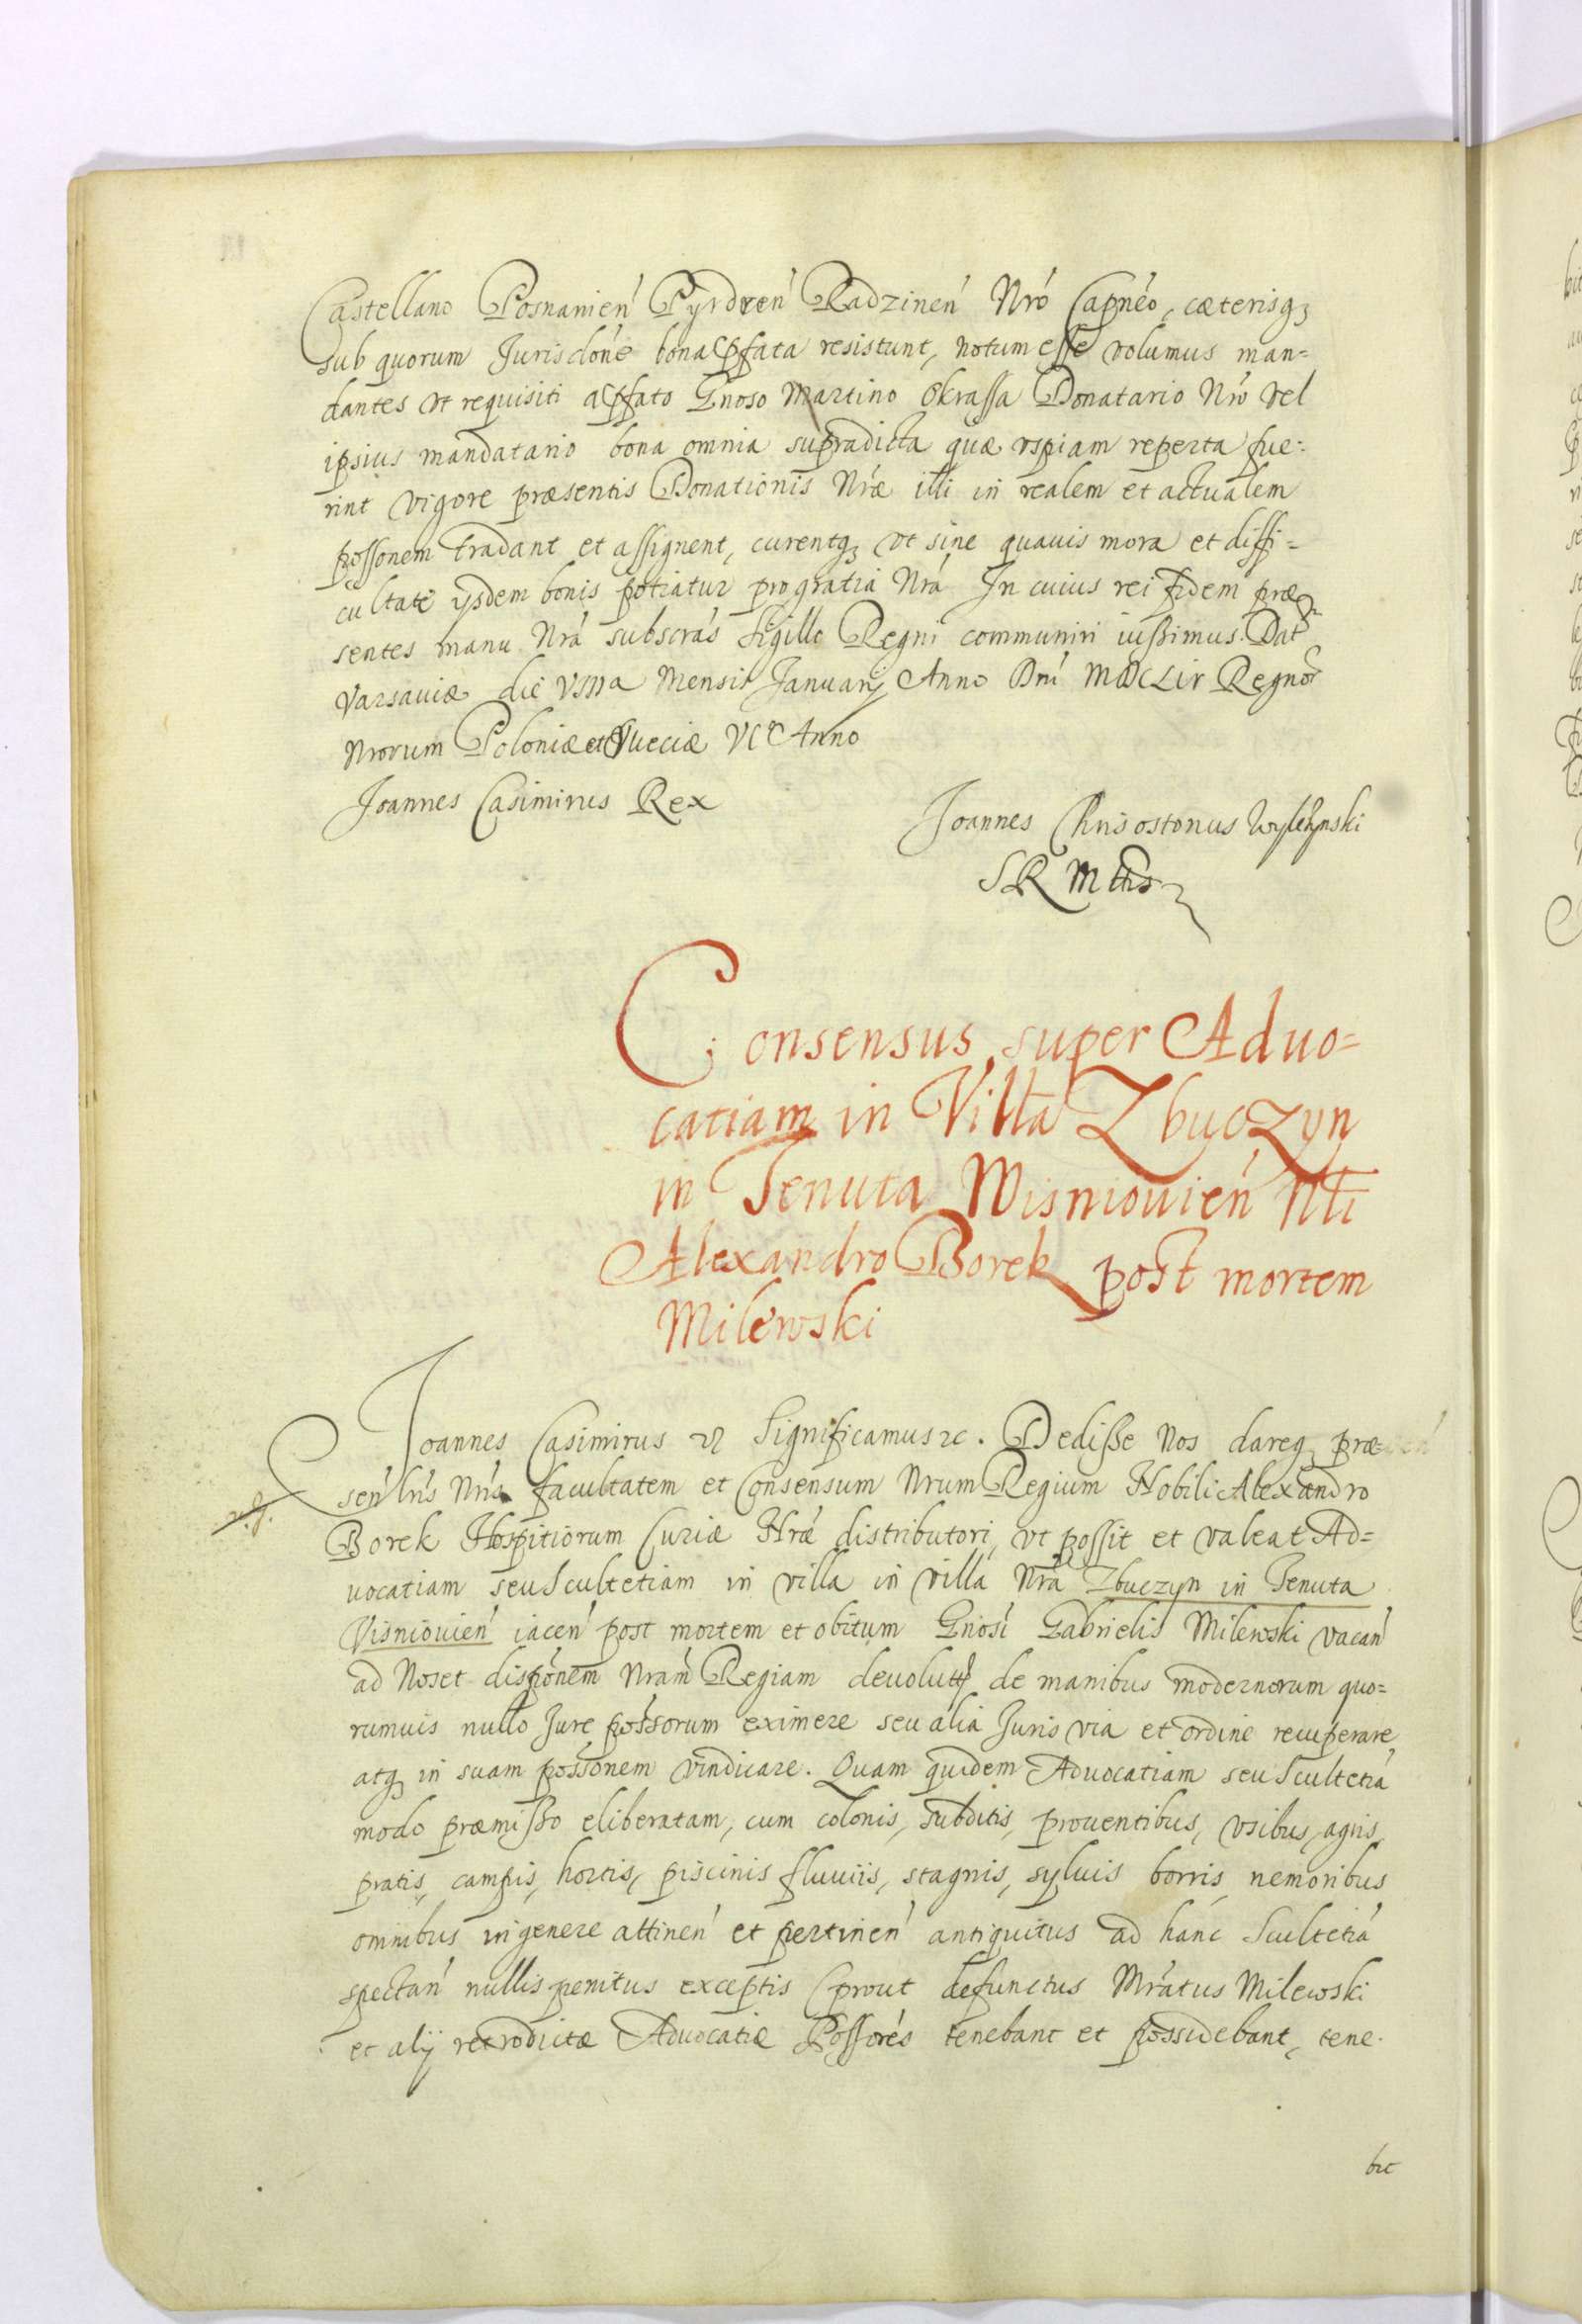 Castellano Posnanień Pyrdreń Radzineń Nŕo Capnéo, cæterisqȝ
sub quorum Jurisdońe bona pfata resistunt, notum esse volumus man=
dantes vt requisiti a pfato Gnoso Martino Okrassa Donatario Nŕo vel
ipsius mandatario bona omnia supradicta quæ vspiam reperta fue=
rint vigore præsentis Donationis Nŕæ illi in realem et actualem
possonem tradant et assignent, curentqȝ vt sine quauis mora et diffi=
cultate ijsdem bonis potiatur pro gratia Nŕa In cuius rei fidem præ
sentes manu Nŕa subscrás Sigillo Regni communiri iussimus. Dat
Varsauiæ die Mensis Januarij Anno Dńi MDCLIV Regno
Nrorum Poloniæ et Sueciæ VIº Anno
Joannes Casimirus Rex
Joannes Chrisostonus
S R Mttis
Consensus super Aduo=
catiam in Villa Zbuczyn
in Tenuta Wisniouień Nli
Alexandro Borek post mortem
Milewski
Joannes Casimirus Significamus ꝛc. Dedisse Nos dareqȝ præ=
seń lrís Nrís facultatem et Consensum Nrum Regium Nobili Alexandro
Borek Hospitiorum Curiæ Nŕæ distributori, vt possit et valeat Ad=
uocatiam seu Scultetiam in villa in villa Nŕa Zbuczyn in Tenuta
Visniouień iaceń post mortem et obitum Gnosi Gabrielis Milewski vacań
ad Nos et disponem Nram Regiam de manibus modernorum quo=
rumuis nullo Jure possorum eximere seu alia Juris via et ordine recuperare
atqȝ in suam possonem vindicare. Quam quidem Aduocatiam seu Scultetiá
modo præmisso eliberatam, cum colonis, subditis, prouentibus, vsibus, agris,
pratis, campis, hortis, piscinis fluuiis, stagnis, syluis borris, nemoribus
omnibus in genere attineń et pertineń antiquitus ad hanc Scultetiá
spectań nullis penitus exceptis (prout defunctus Mratus Milewski
et alij retrodictæ Aduocatiæ Possorés tenebant et possidebant, tene